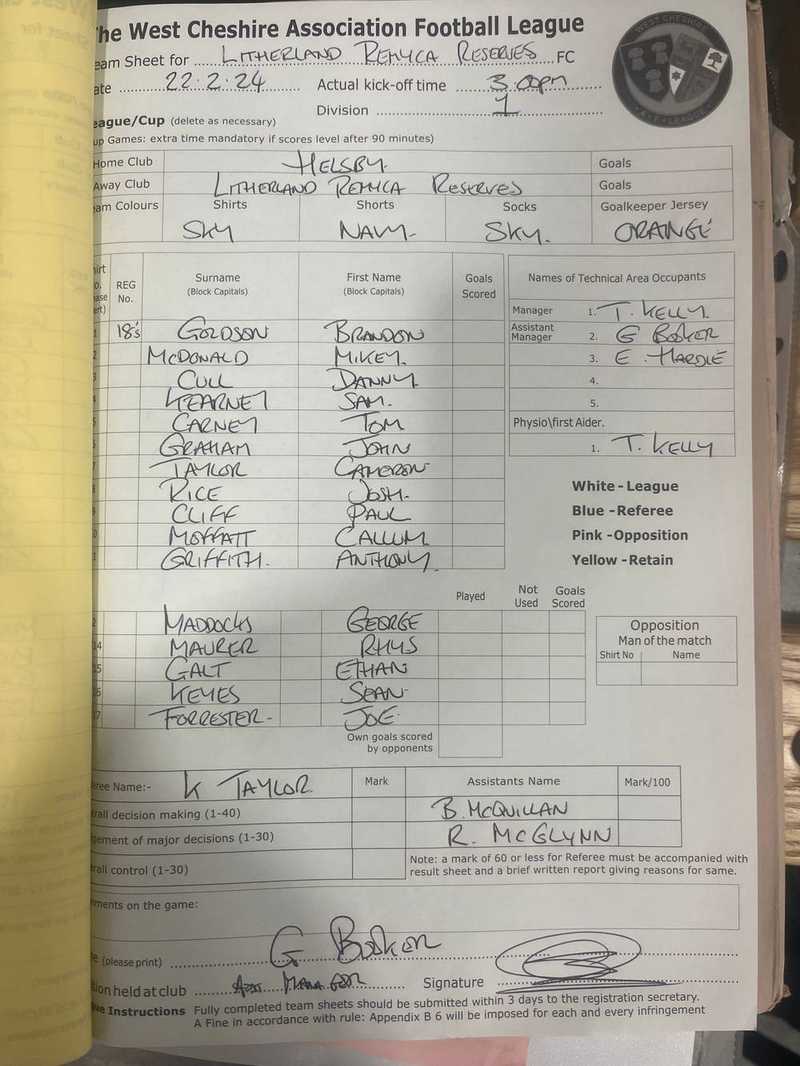 he West Cheshire Association Football League
WEST CHESHIRE
A.F. LEAGUE
eam Sheet for LITHERLAND REMYCA RESERVES FC
ate 22.2.24 Actual kick-off time 3.00pm
Division 1
eague/Cup (delete as necessary)
up Games: extra time mandatory if scores level after 90 minutes)
Home Club HELSBY. Goals
Away Club LITHERLAND REMYCA RESERVES Goals
eam Colours Shirts Shorts Socks Goalkeeper Jersey
SKY NAVY SKY. ORANGE
REG No. Surname (Block Capitals) First Name (Block Capitals) Goals Scored
1 18's GOLDSON BRANDON
2 MCDONALD MIKEY.
3 CULL DANNY
4 KEARNEY SAM.
5 CARNEY TOM
6 GRAHAM JOHN
7 TAYLOR CAMERON
8 RICE JOSH.
9 CLIFF PAUL
0 MOFFATT CALLUM
1 GRIFFITH. ANTHONY
Names of Technical Area Occupants
Manager 1. T. KELLY.
Assistant Manager 2. G BOOKER
3. E. HARDIE
4.
5.
Physio\first Aider.
1. T. KELLY
White - League
Blue - Referee
Pink - Opposition
Yellow - Retain
Played Not Used Goals Scored
2 MADDOCKS GEORGE
14 MAURER RHYS
15 GALT ETHAN
16 KEYES SEAN
17 FORRESTER - JOE
Own goals scored by opponents
Opposition
Man of the match
Shirt No Name
eree Name:- K TAYLOR Mark Assistants Name Mark/100
rall decision making (1-40) B. MCQUILLAN
gement of major decisions (1-30) R. MCGLYNN
rall control (1-30) Note: a mark of 60 or less for Referee must be accompanied with
result sheet and a brief written report giving reasons for same.
ments on the game:
e (please print) G BOOKER
tion held at club ASST MANAGER Signature
ve Instructions Fully completed team sheets should be submitted within 3 days to the registration secretary.
A Fine in accordance with rule: Appendix B 6 will be imposed for each and every infringement